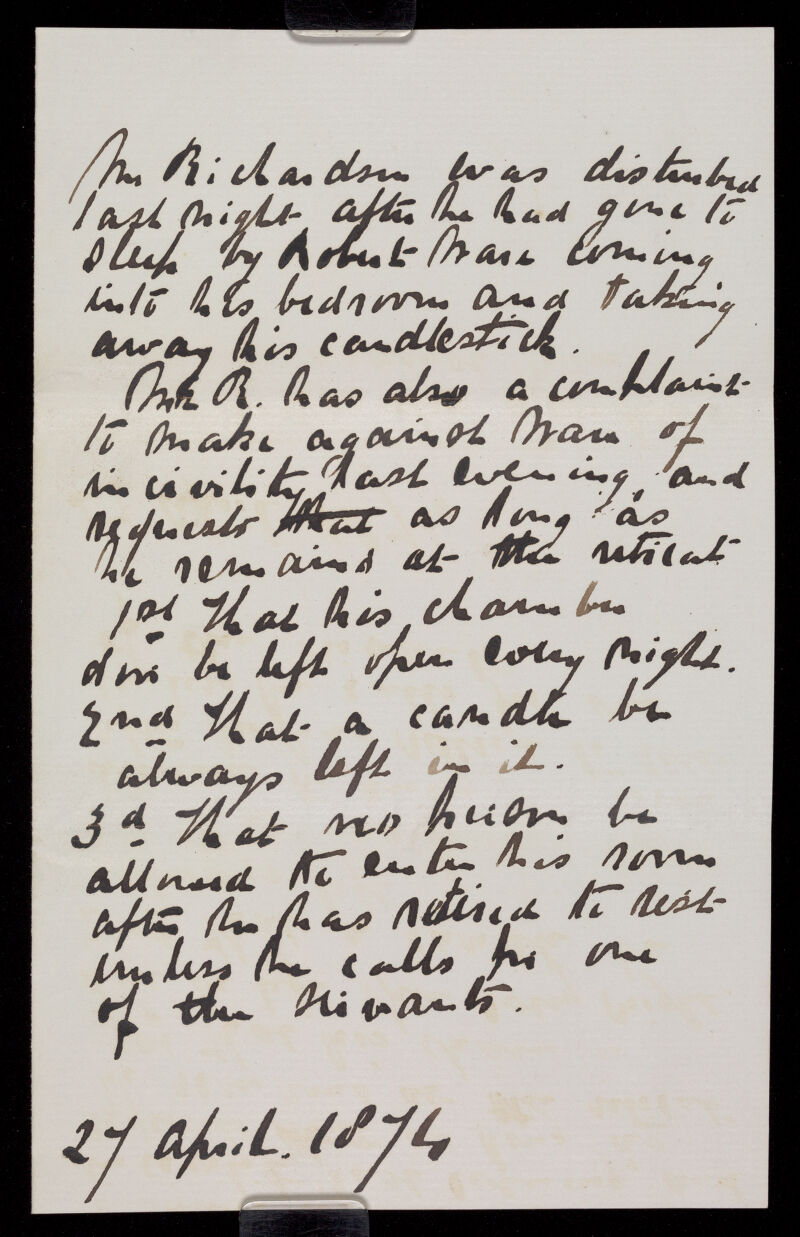 Mr Richardson was disturbed
last night after he had gone to
sleep by Robert Ware coming
into his bedroom and taking
away his candlestick.
Mr R. has also a complaint
to make against Ware of
incivility last evening, and
requests that as long as
he remains at the retreat
1st That his chamber
door be left open every night.
2nd That a candle be
always left in it.
3d That no person be
allowed to enter his room
after he has retired to rest
unless he calls for one
of the servants.
27 April. 1876